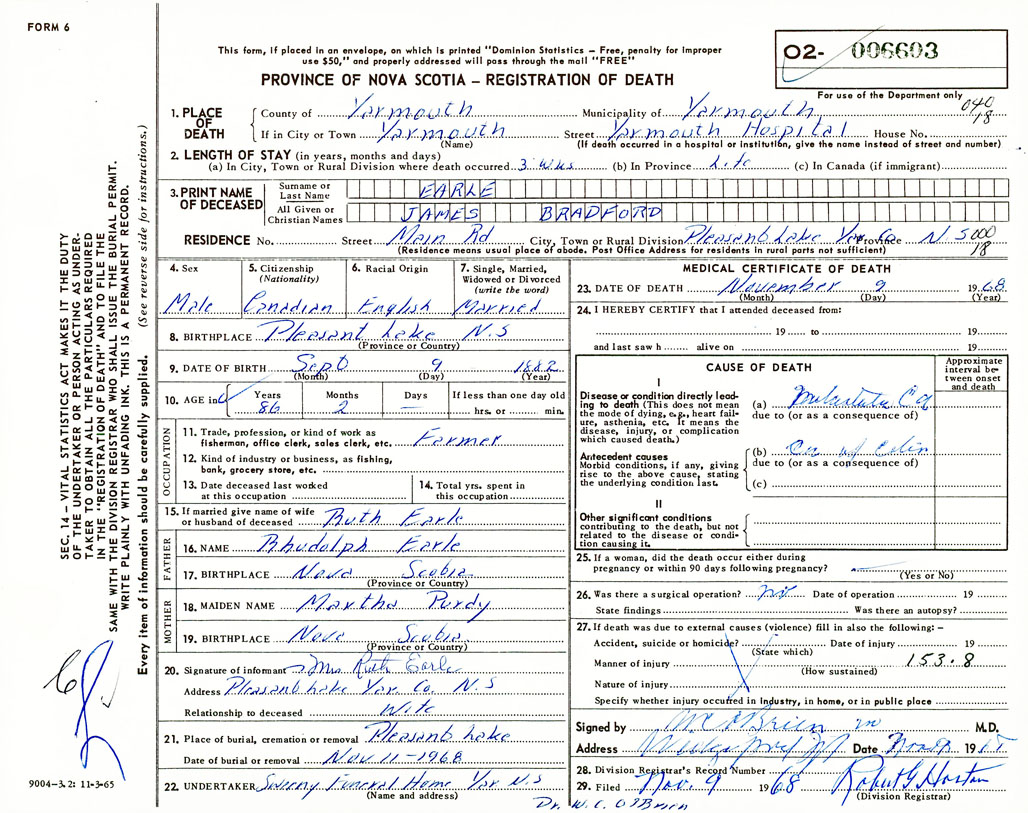 FORM 6
O2- 006603
This form, if placed in an envelope, on which is printed "Dominion Statistics – Free, penalty for improper
use $50," and properly addressed will pass through the mail "FREE"
PROVINCE OF NOVA SCOTIA – REGISTRATION OF DEATH
For use of the Department only
040
18
1. PLACE OF DEATH County of Yarmouth Municipality of Yarmouth
If in City or Town Yarmouth Street Yarmouth Hospital House No.
(Name) (If death occurred in a hospital or institution, give the name instead of street and number)
2. LENGTH OF STAY (in years, months and days)
(a) In City, Town or Rural Division where death occurred 3 Wks (b) In Province Life (c) In Canada (if immigrant)
3. PRINT NAME OF DECEASED Surname or Last Name EARLE
All Given or Christian Names JAMES BRADFORD
RESIDENCE No. Street Main Rd City, Town or Rural Division Pleasant Lake Yar Co Province N S 000
18
(Residence means usual place of abode. Post Office Address for residents in rural parts not sufficient)
4. Sex Male
5. Citizenship (Nationality) Canadian
6. Racial Origin English
7. Single, Married, Widowed or Divorced (write the word) Married
8. BIRTHPLACE Pleasant Lake N.S
(Province or Country)
9. DATE OF BIRTH Sept 9 1882
(Month) (Day) (Year)
10. AGE in Years 86 Months 2 Days — If less than one day old hrs. or min.
OCCUPATION
11. Trade, profession, or kind of work as
fisherman, office clerk, sales clerk, etc. Farmer
12. Kind of industry or business, as fishing,
bank, grocery store, etc.
13. Date deceased last worked
at this occupation
14. Total yrs. spent in
this occupation
15. If married give name of wife
or husband of deceased Ruth Earle
FATHER
16. NAME Rhudolph Earle
17. BIRTHPLACE Nova Scotia
(Province or Country)
MOTHER
18. MAIDEN NAME Martha Purdy
19. BIRTHPLACE Nova Scotia
(Province or Country)
20. Signature of informant Mrs Ruth Earle
Address Pleasant Lake Yar. Co. N.S
Relationship to deceased Wife
21. Place of burial, cremation or removal Pleasant Lake
Date of burial or removal Nov 11 - 1968
22. UNDERTAKER Sweeny Funeral Home Yar N.S
(Name and address)
MEDICAL CERTIFICATE OF DEATH
23. DATE OF DEATH November 9 1968
(Month) (Day) (Year)
24. I HEREBY CERTIFY that I attended deceased from:
19 to 19
and last saw h alive on 19
CAUSE OF DEATH
Approximate interval between onset and death
I
Disease or condition directly leading to death (This does not
mean the mode of dying, e.g., heart failure, asthenia, etc. It means the
disease, injury, or complication
which caused death.)
(a)
due to (or as a consequence of)
Antecedent causes
Morbid conditions, if any, giving
rise to the above cause, stating
the underlying condition last.
(b) Ca of
due to (or as a consequence of)
(c)
II
Other significant conditions
contributing to the death, but not
related to the disease or condition
causing it.
25. If a woman, did the death occur either during
pregnancy or within 90 days following pregnancy?
(Yes or No)
26. Was there a surgical operation? no Date of operation 19
State findings Was there an autopsy?
27. If death was due to external causes (violence) fill in also the following: –
Accident, suicide or homicide? Date of injury 19
(State which)
Manner of injury 153.8
(How sustained)
Nature of injury
Specify whether injury occurred in Industry, in home, or in public place
Signed by W C O'Brien M.D.
Address Date 19
28. Division Registrar's Record Number
29. Filed Nov. 9 1968 Robert G Horton
(Division Registrar)
Dr. W. C. O'Brien
SEC. 14 – VITAL STATISTICS ACT MAKES IT THE DUTY
OF THE UNDERTAKER OR PERSON ACTING AS UNDER-
TAKER TO OBTAIN ALL THE PARTICULARS REQUIRED
IN THE "REGISTRATION OF DEATH" AND TO FILE THE
SAME WITH THE DIVISION REGISTRAR WHO SHALL ISSUE THE BURIAL PERMIT.
WRITE PLAINLY WITH UNFADING INK. THIS IS A PERMANENT RECORD.
Every item of information should be carefully supplied. (See reverse side for instructions.)
9004–3.2: 11-3-65